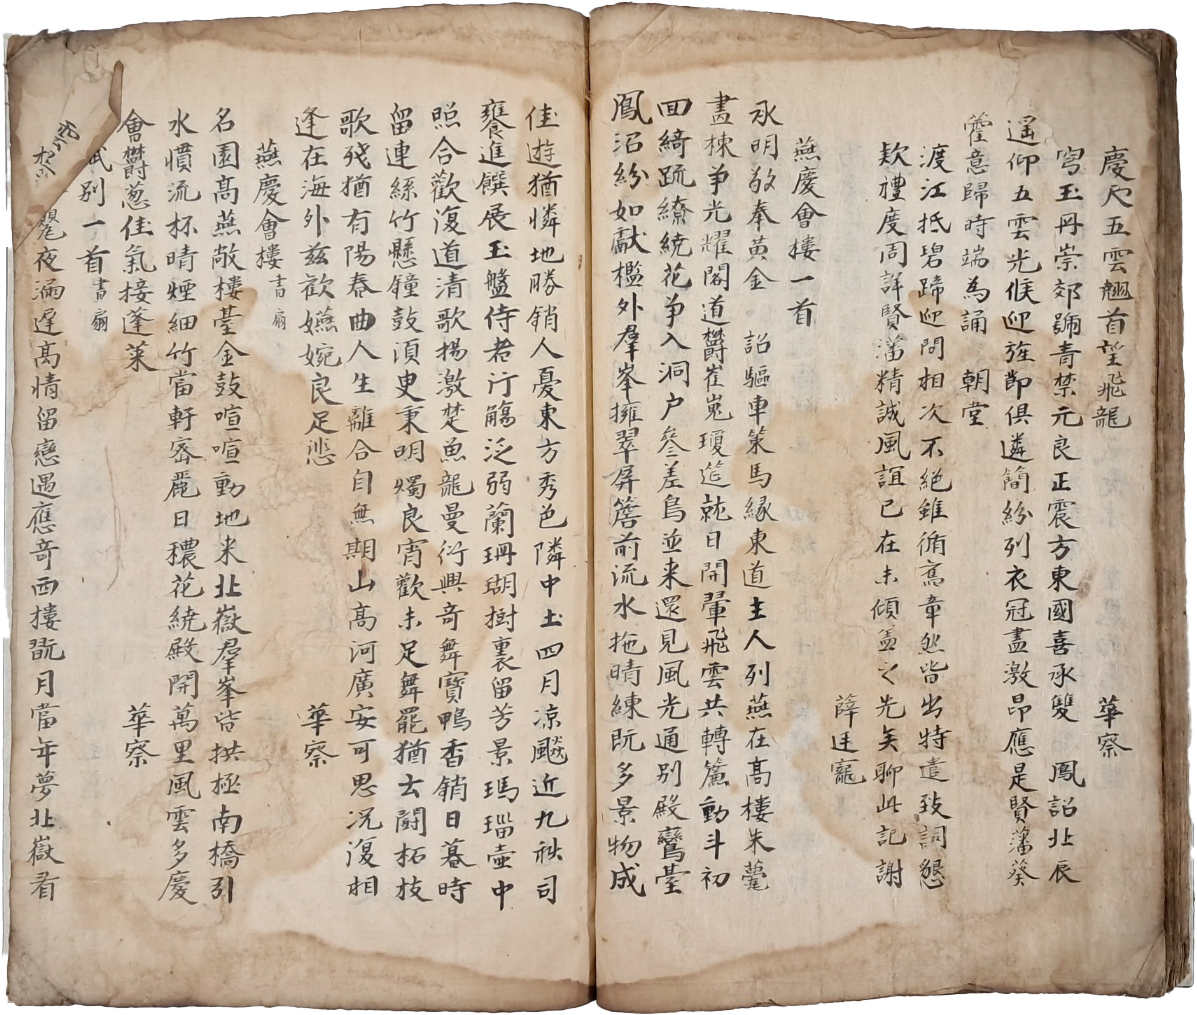 慶尺五雲翹首望飛龍 華察
寫玉丹崇郊號青禁元良正震方東國喜承雙 鳳詔北辰
遥仰五雲光候迎旌節俱遴簡紛列衣冠盡激昂應是賢藩葵
藿意歸時端為誦 朝堂
渡江抵碧蹄迎問相次不絕雖循舊章然皆出特遣致詞懇
欵禮度周詳賢藩精誠風誼已在未傾盖之先矣聊此記謝
薛廷寵
燕慶會樓一首
承明敬奉黄金 詔驅車策馬緣東道主人列燕在髙樓朱甍
畫棟争光耀閣道欝崔嵬瓊筵就日開翬飛雲共轉簾動斗初
回綺疏繚繞花争入洞户叅差鳥並来還見風光通别殿鸞臺
鳳沼紛如獻檻外羣峯擁翠屏簷前流水拖晴練既多景物成
佳遊猶憐地勝銷人憂東方秀色隣中土四月凉飈近九秋司
饔進饌展玉盤侍者行觴泛弱蘭珊瑚樹裏留芳景瑪瑙壷中
照合歡復道清歌揚激楚魚龍曼衍興奇舞寶鴨香銷日暮時
留連絲竹懸鐘鼓湏㬰秉明燭良宵歡未足舞罷猶去鬪柘枝
歌殘猶有陽春曲人生離合自無期山髙河廣安可思况復相
逢在海外兹歡嬿婉良足悲 華察
燕慶會樓 書扇
名園髙燕敞樓臺金鼓喧喧動地来北嶽羣峯皆拱極南橋引
水慣流杯晴煙細竹當軒密麗日穠花繞殿開萬里風雲多慶
會欝葱佳氣接蓬莱 華察
賦别一首 書扇
夜漏遲髙情留戀遇應奇西樓翫月當年夢北嶽看